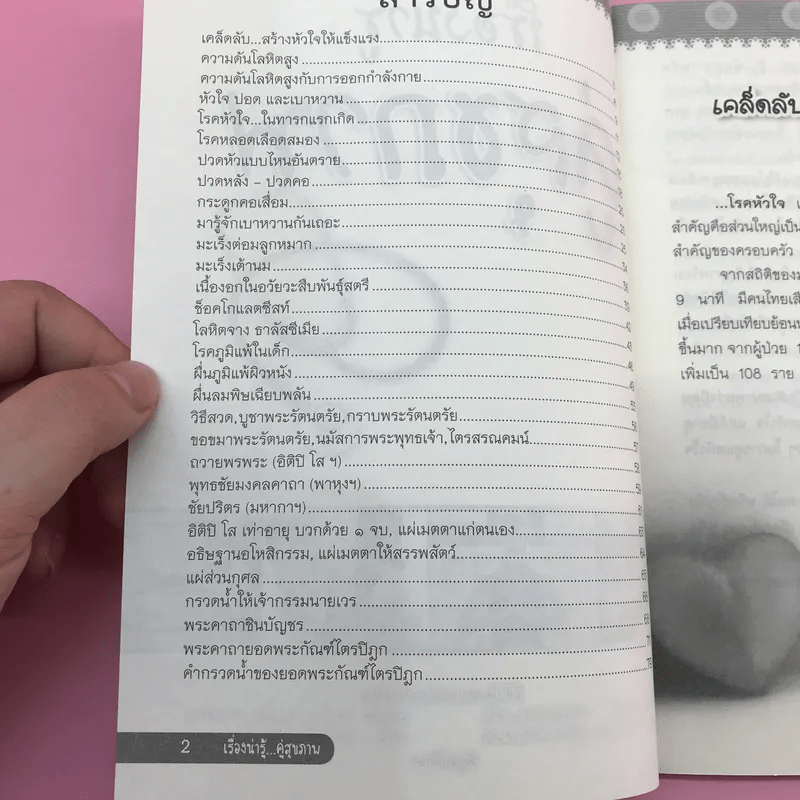 สารบัญ
เคล็ดลับ...สร้างหัวใจให้แข็งแรง
ความดันโลหิตสูง
ความดันโลหิตสูงกับการออกกำลังกาย
หัวใจ ปอด และเบาหวาน
โรคหัวใจ...ในทารกแรกเกิด
โรคหลอดเลือดสมอง
ปวดหัวแบบไหนอันตราย
ปวดหลัง – ปวดคอ
กระดูกคอเสื่อม
มารู้จักเบาหวานกันเถอะ
มะเร็งต่อมลูกหมาก
มะเร็งเต้านม
เนื้องอกในอวัยวะสืบพันธุ์สตรี
ช็อคโกแลตซีสท์
โลหิตจาง ธาลัสซีเมีย
โรคภูมิแพ้ในเด็ก
ผื่นภูมิแพ้ผิวหนัง
ผื่นลมพิษเฉียบพลัน
วิธีสวด,บูชาพระรัตนตรัย,กราบพระรัตนตรัย
ขอขมาพระรัตนตรัย,นมัสการพระพุทธเจ้า,ไตรสรณคมน์
ถวายพรพระ (อิติปิ โส ฯ)
พุทธชัยมงคลคาถา (พาหุงฯ)
ชัยปริตร (มหากาฯ)
อิติปิ โส เท่าอายุ บวกด้วย ๑ จบ, แผ่เมตตาแก่ตนเอง
อธิษฐานอโหสิกรรม, แผ่เมตตาให้สรรพสัตว์
แผ่ส่วนกุศล
กรวดน้ำให้เจ้ากรรมนายเวร
พระคาถาชินบัญชร
พระคาถายอดพระกัณฑ์ไตรปิฎก
คำกรวดน้ำของยอดพระกัณฑ์ไตรปิฎก
2 เรื่องน่ารู้...คู่สุขภาพ
เคล็ดลับ
...โรคหัวใจ
สำคัญคือส่วนใหญ่เป็น
สำคัญของครอบครัว
จากสถิติของ
9 นาที มีคนไทยเสีย
เมื่อเปรียบเทียบย้อน
ขึ้นมาก จากผู้ป่วย
เพิ่มเป็น 108 ราย